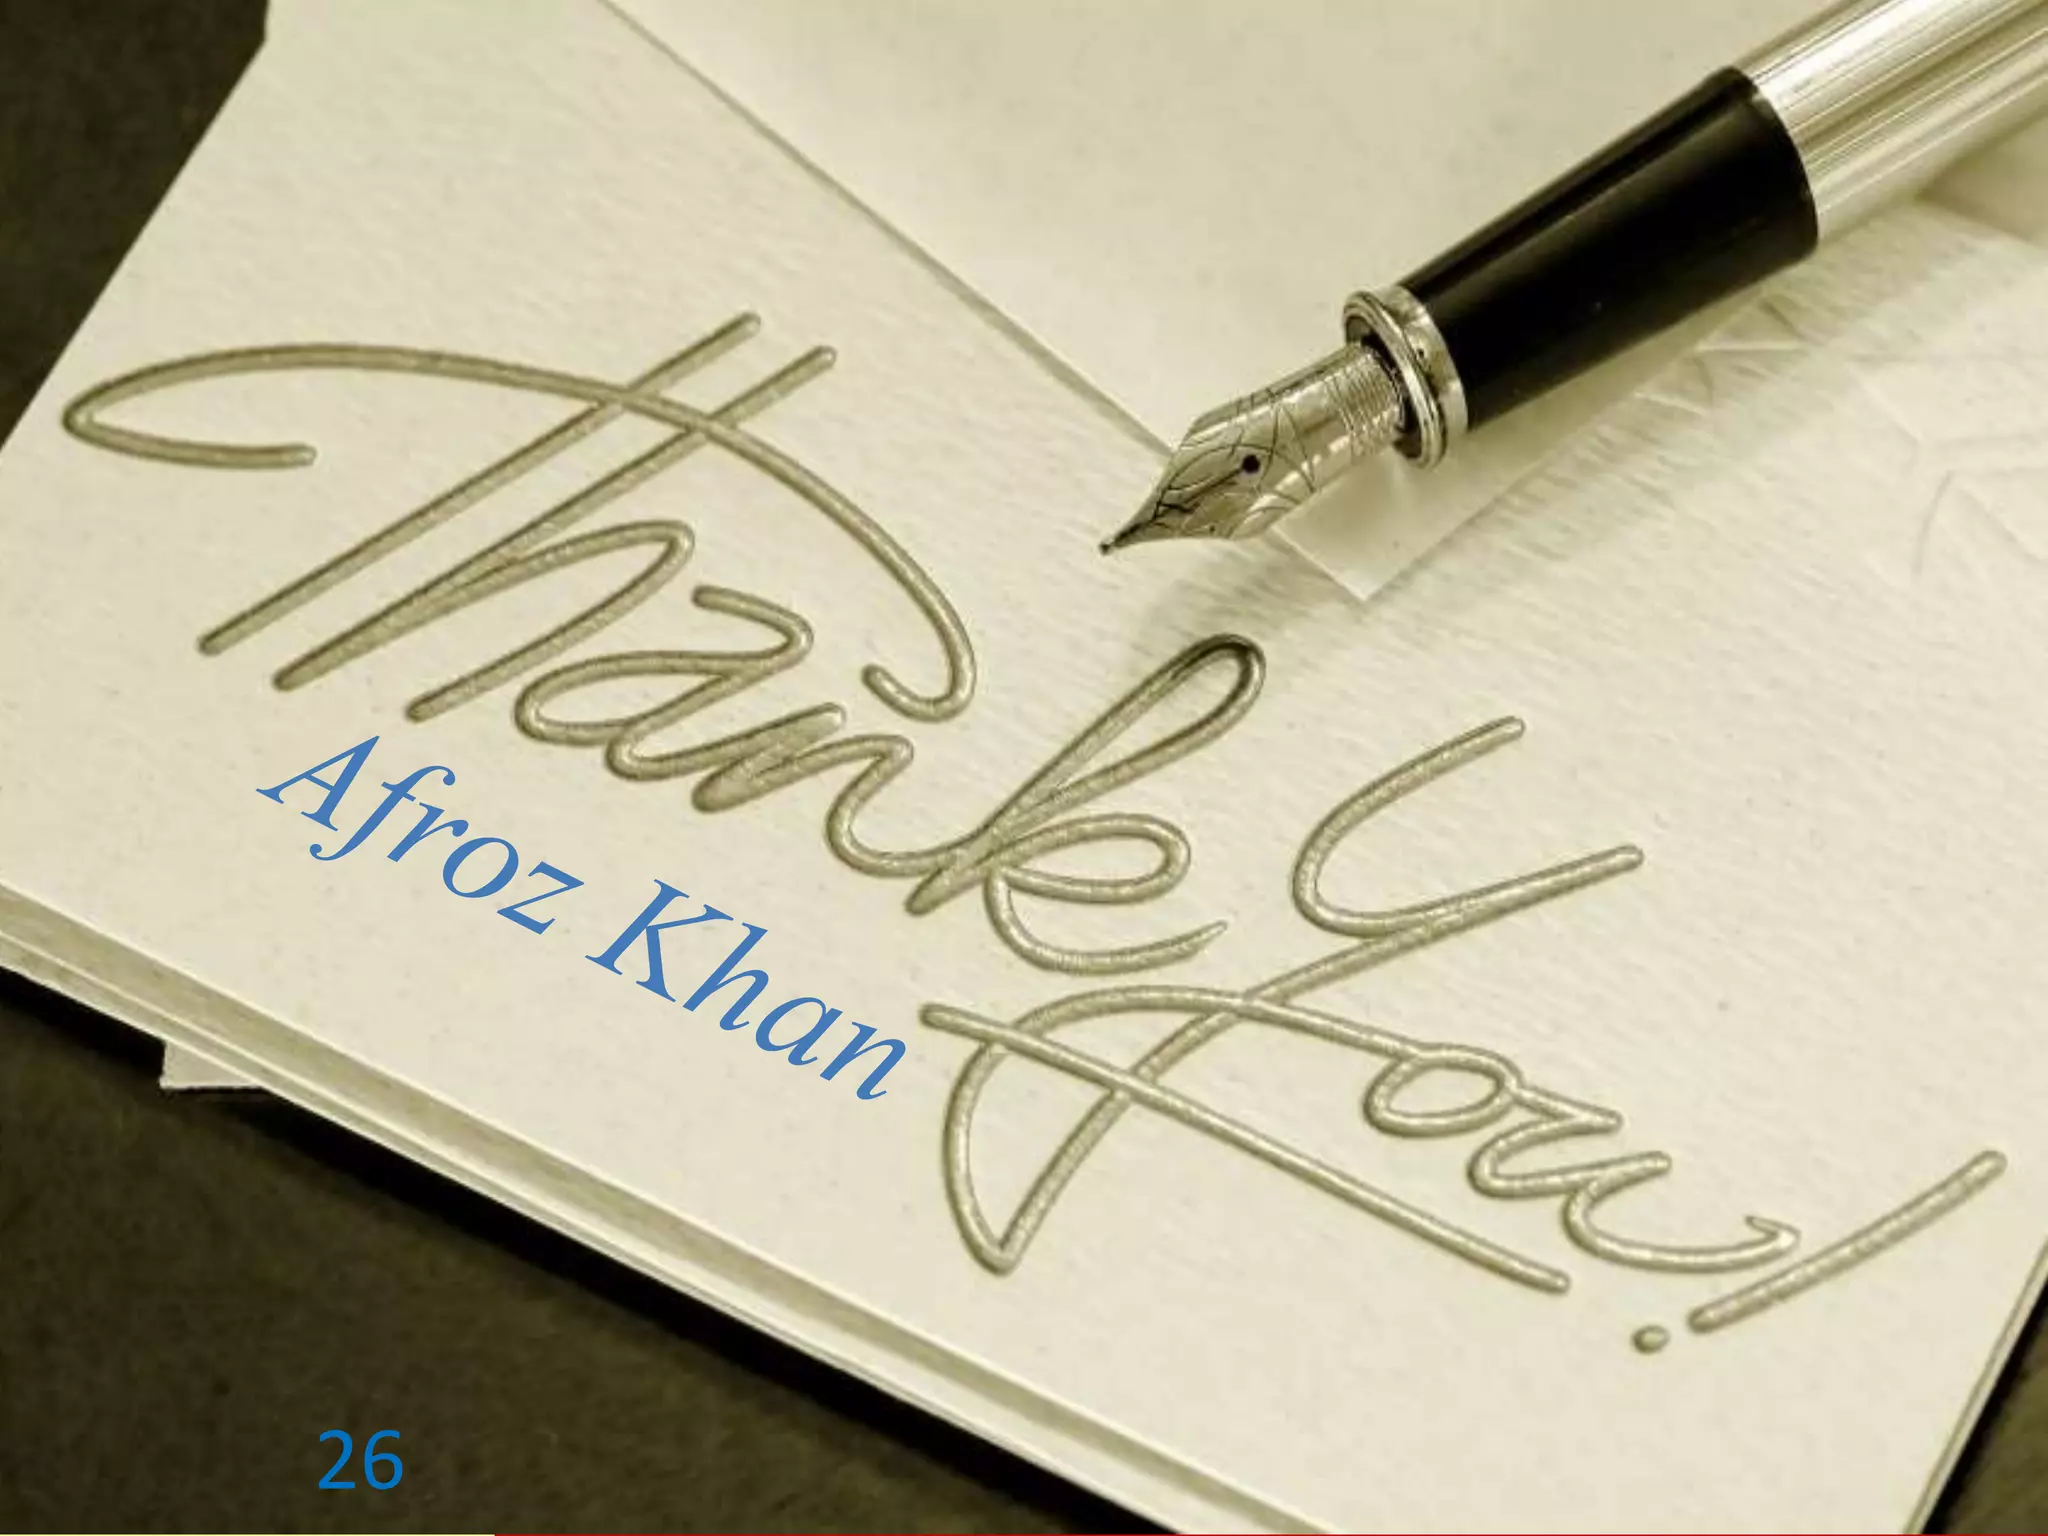 Thank
You!
Afroz Khan
26